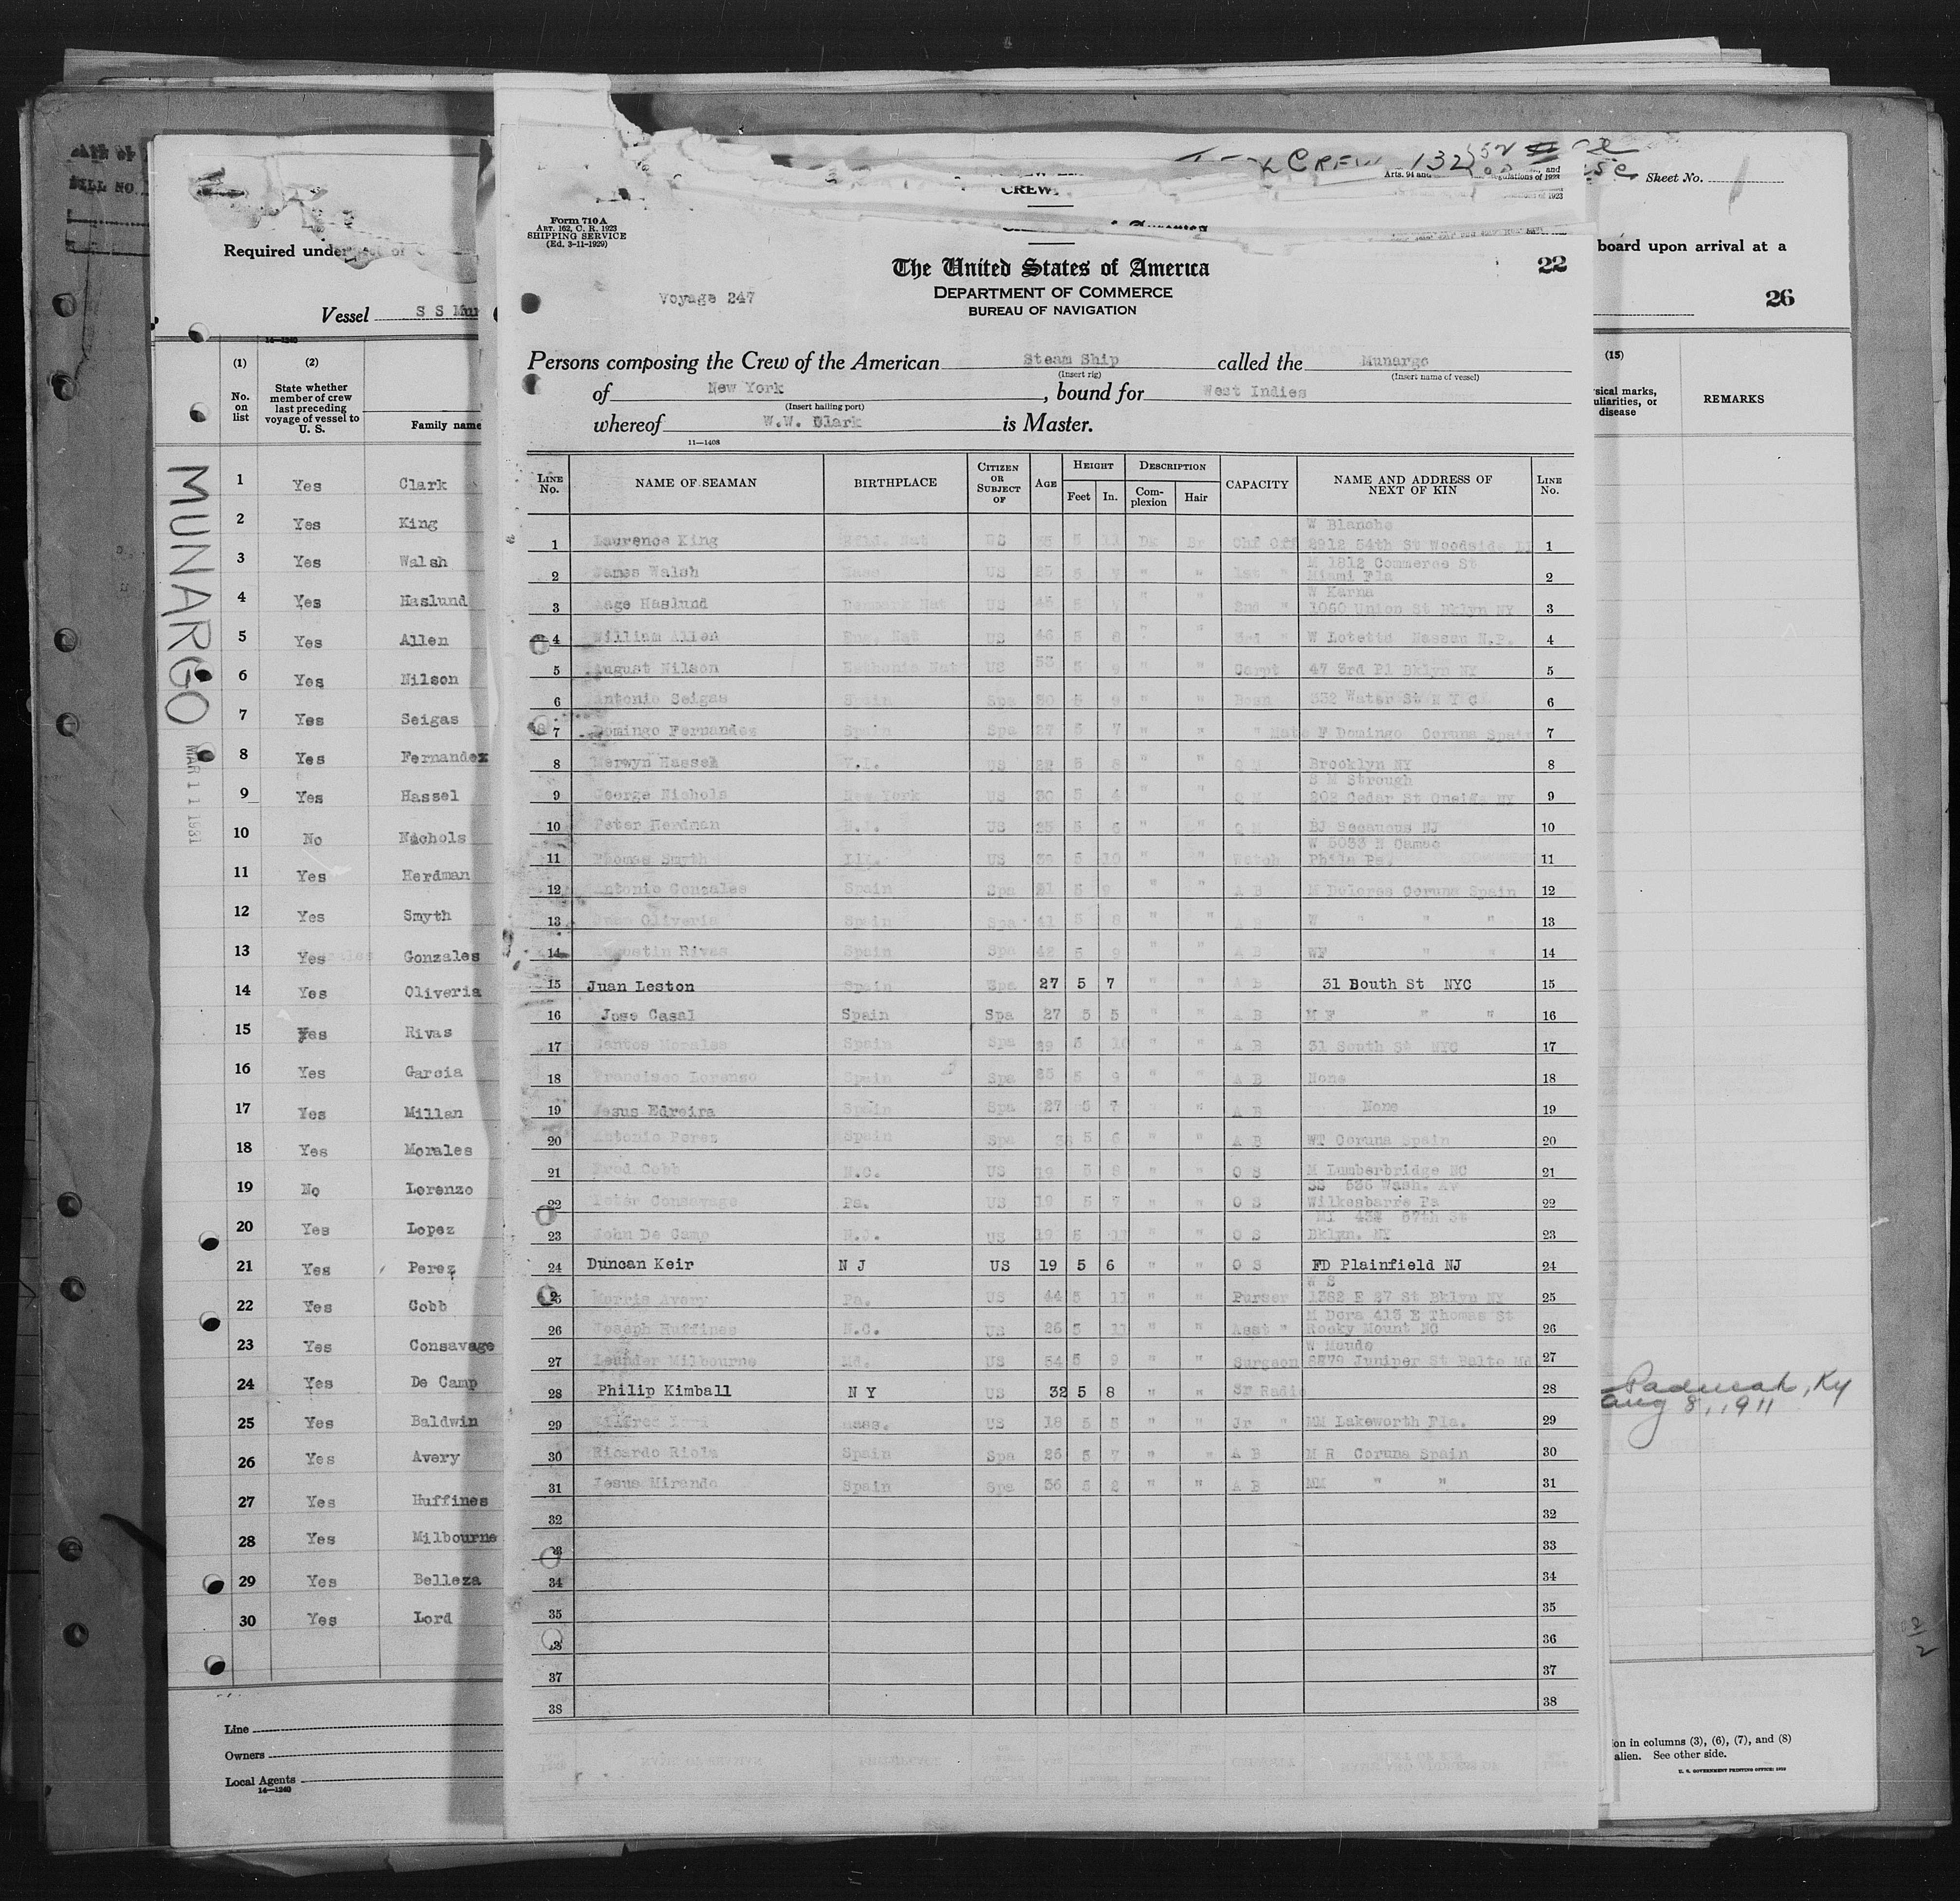 DATE OF
BILL NO.
L CREW 132
Arts. 94 and
Regulations of 1923
Sheet No. 1
CREW
Required under
board upon arrival at a
26
Vessel S S Mun
(1) (2) (15)
No. on list
State whether member of crew last preceding voyage of vessel to U. S.
Family name
physical marks, peculiarities, or disease
REMARKS
MUNARGO
MAR 11 1931
1 Yes Clark
2 Yes King
3 Yes Walsh
4 Yes Haslund
5 Yes Allen
6 Yes Nilson
7 Yes Seigas
8 Yes Fernandez
9 Yes Hassel
10 No Nichols
11 Yes Herdman
12 Yes Smyth
13 Yes Gonzales
14 Yes Oliveria
15 Yes Rivas
16 Yes Garcia
17 Yes Millan
18 Yes Morales
19 No Lorenzo
20 Yes Lopez
21 Yes Perez
22 Yes Cobb
23 Yes Consavage
24 Yes De Camp
25 Yes Baldwin
26 Yes Avery
27 Yes Huffines
28 Yes Milbourne
29 Yes Belleza
30 Yes Lord
Line
Owners
Local Agents
14—1240
Form 710 A
ART. 162, C. R. 1923
SHIPPING SERVICE
(Ed. 3-11-1929)
22
The United States of America
DEPARTMENT OF COMMERCE
BUREAU OF NAVIGATION
Voyage 247
Persons composing the Crew of the American Steam Ship called the Munargo
(Insert rig) (Insert name of vessel)
of New York, bound for West Indies
(Insert hailing port)
whereof W.W. Clark is Master.
11—1408
LINE No. NAME OF SEAMAN BIRTHPLACE CITIZEN OR SUBJECT OF AGE HEIGHT Feet In. DESCRIPTION Complexion Hair CAPACITY NAME AND ADDRESS OF NEXT OF KIN LINE No.
W Blanche
1 Laurence King Nat US 35 5 11 Dk Br Chf Off 2912 54th St Woodside LI 1
M 1812 Commerce St
2 James Walsh Mass US 25 5 7 " " 1st " Miami Fla 2
W Karna
3 Aage Haslund Denmk Nat US 45 5 7 " " 2nd " 1060 Union St Bklyn NY 3
4 William Allen Eng. Nat US 46 5 8 " " 3rd " W Lotetta Nassau N.P. 4
5 August Nilson Esthonia Nat US 53 5 9 " " Carpt 47 3rd Pl Bklyn NY 5
6 Antonio Seigas Spain Spa 30 5 9 " " Bosn 332 Water St N Y C 6
7 Domingo Fernandes Spain Spa 27 5 7 " " " Mate F Domingo Coruna Spain 7
8 Merwyn Hassel V.I. US 22 5 8 " " Q M Brooklyn NY 8
S M Strough
9 George Nichols New York US 30 5 4 " " Q M 202 Cedar St Oneida NY 9
10 Peter Herdman N.J. US 25 5 6 " " Q M BJ Secaucus NJ 10
W 5033 N Camac
11 Thomas Smyth US 39 5 10 " " Watch Phila Pa. 11
12 Antonio Gonzales Spain Spa 21 5 9 " " A B M Dolores Coruna Spain 12
13 Juan Oliveria Spain Spa 41 5 8 " " A W " " " 13
14 Augustin Rivas Spain Spa 42 5 9 " " A B WF " " 14
15 Juan Leston Spain Spa 27 5 7 " " A B 31 Bouth St NYC 15
16 Jose Casal Spain Spa 27 5 5 " " A B M F " " 16
17 Santos Morales Spain Spa 29 5 10 " " A B 31 South St NYC 17
18 Francisco Lorenso Spain Spa 25 5 9 " " A B None 18
19 Jesus Edreira Spain Spa 27 5 7 " " A B None 19
20 Antonio Perez Spain Spa 38 5 6 " " A B WT Coruna Spain 20
21 Fred Cobb N.C. US 19 5 8 " " O S M Lumberbridge NC 21
SS 636 Wash. Av
22 Peter Consavage Pa. US 19 5 7 " " O S Wilkesbarre Pa 22
MI 434 57th St
23 John De Camp N.J. US 19 5 11 " " O S Bklyn. NY 23
24 Duncan Keir N J US 19 5 6 " " O S FD Plainfield NJ 24
W S
25 Morris Avery Pa. US 44 5 11 " " Purser 1382 E 27 St Bklyn NY 25
M Dora 413 E Thomas St
26 Joseph Huffines N.C. US 26 5 11 " " Asst " Rocky Mount NC 26
W Maude
27 Leander Milbourne Md. US 54 5 9 " " Surgeon Juniper St Balto Md 27
28 Philip Kimball N Y US 32 5 8 " " Sr Radio 28
29 Wilfred Mass. US 18 5 5 " " Jr " MM Lakeworth Fla. 29
30 Ricardo Spain Spa 26 5 7 " " A B M R Coruna Spain 30
31 Jesus Mirando Spain Spa 36 5 2 " " A B MM " " 31
32 32
33 33
34 34
35 35
36
37 37
38 38
Paducah, Ky
Aug 8, 1911
ion in columns (3), (6), (7), and (8)
alien. See other side.
U. S. GOVERNMENT PRINTING OFFICE: 1929